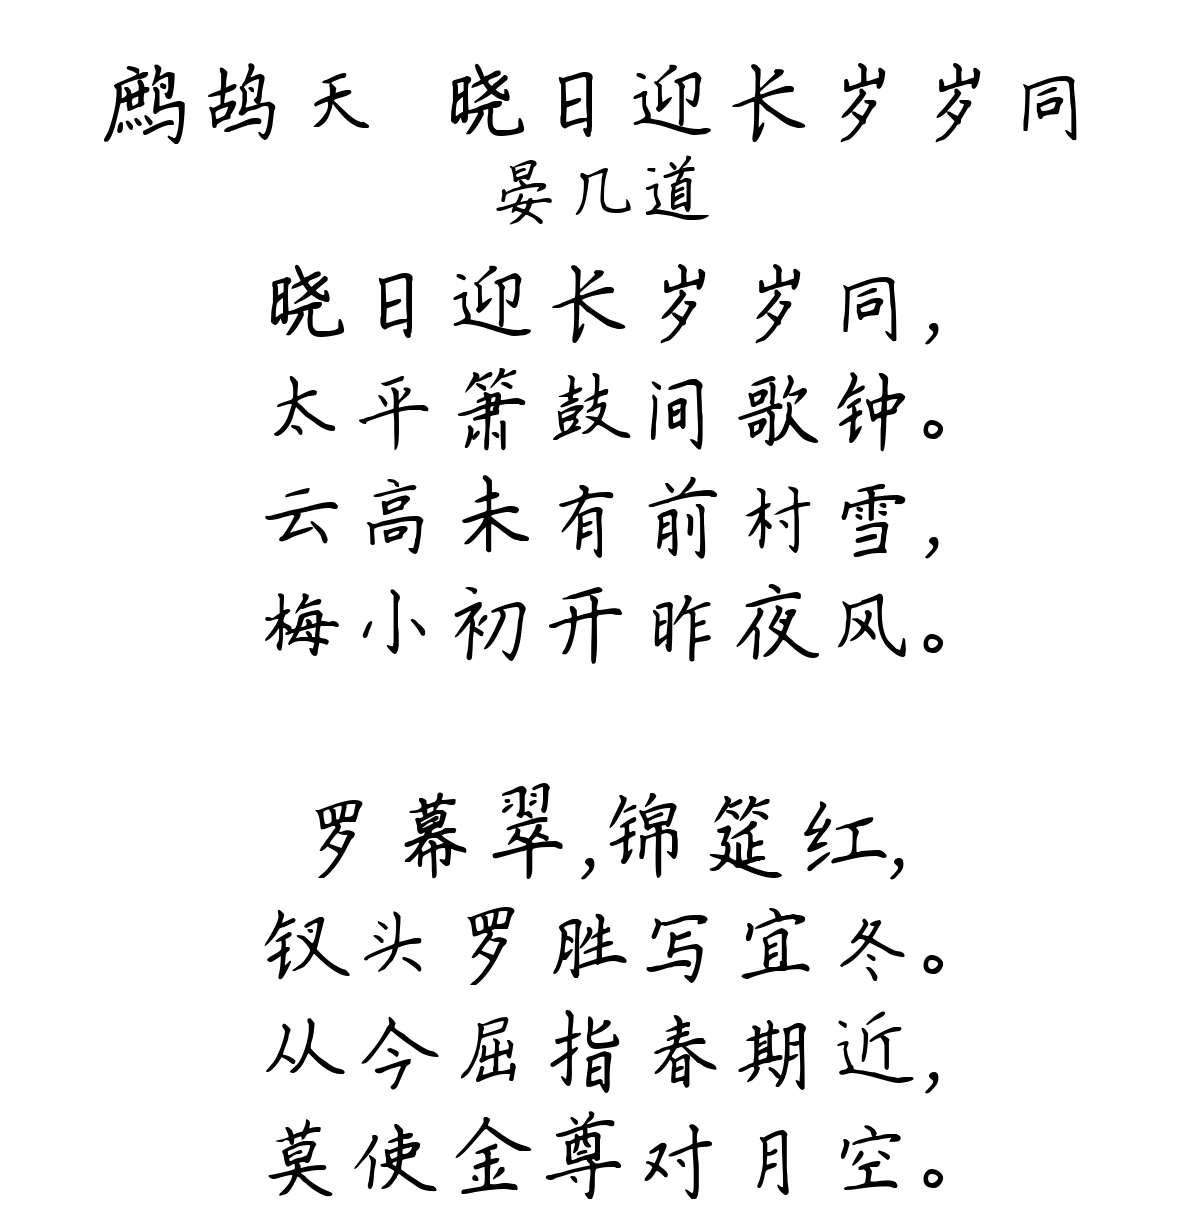 鹧鸪天 晓日迎长岁岁同
晏几道
晓日迎长岁岁同,
太平箫鼓间歌钟。
云高未有前村雪,
梅小初开昨夜风。
罗幕翠,锦筵红,
钗头罗胜写宜冬。
从今屈指春期近,
莫使金尊对月空。